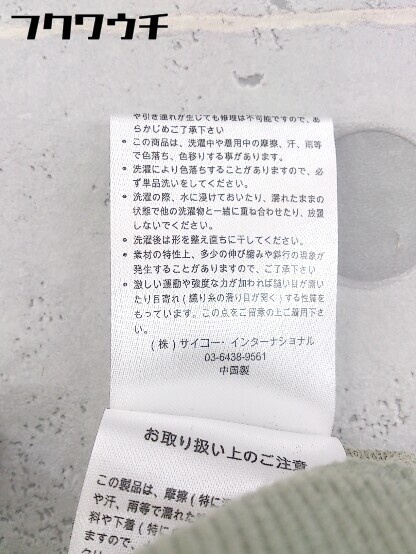 フクワウチ
や引き連れが生じても修理は不可能ですので、あ
らかじめご了承下さい
• この商品は、洗濯中や着用中の摩擦、汗、雨等
で色落ち、色移りする事があります。
• 洗濯により色落ちすることがありますので、必
ず単品洗いをしてください。
• 洗濯の際、水に浸けておいたり、濡れたままの
状態で他の洗濯物と一緒に重ね合わせたり、放置
しないでください。
• 洗濯後は形を整え直ちに干してください。
• 素材の特性上、多少の伸び縮みや斜行の現象が
発生することがありますので、ご了承下さい
• 激しい運動や強度な力が加われば縫い目が開い
たり目寄れ(織り糸の滑り目が空く)する性質を
もっています。この点をご留意の上ご着用下さ
い。
(株)サイコー・インターナショナル
03-6438-9561
中国製
お取り扱い上のご注意
この製品は、摩擦(特に
や汗、雨等で濡れた
料や下着(特に
ますので、